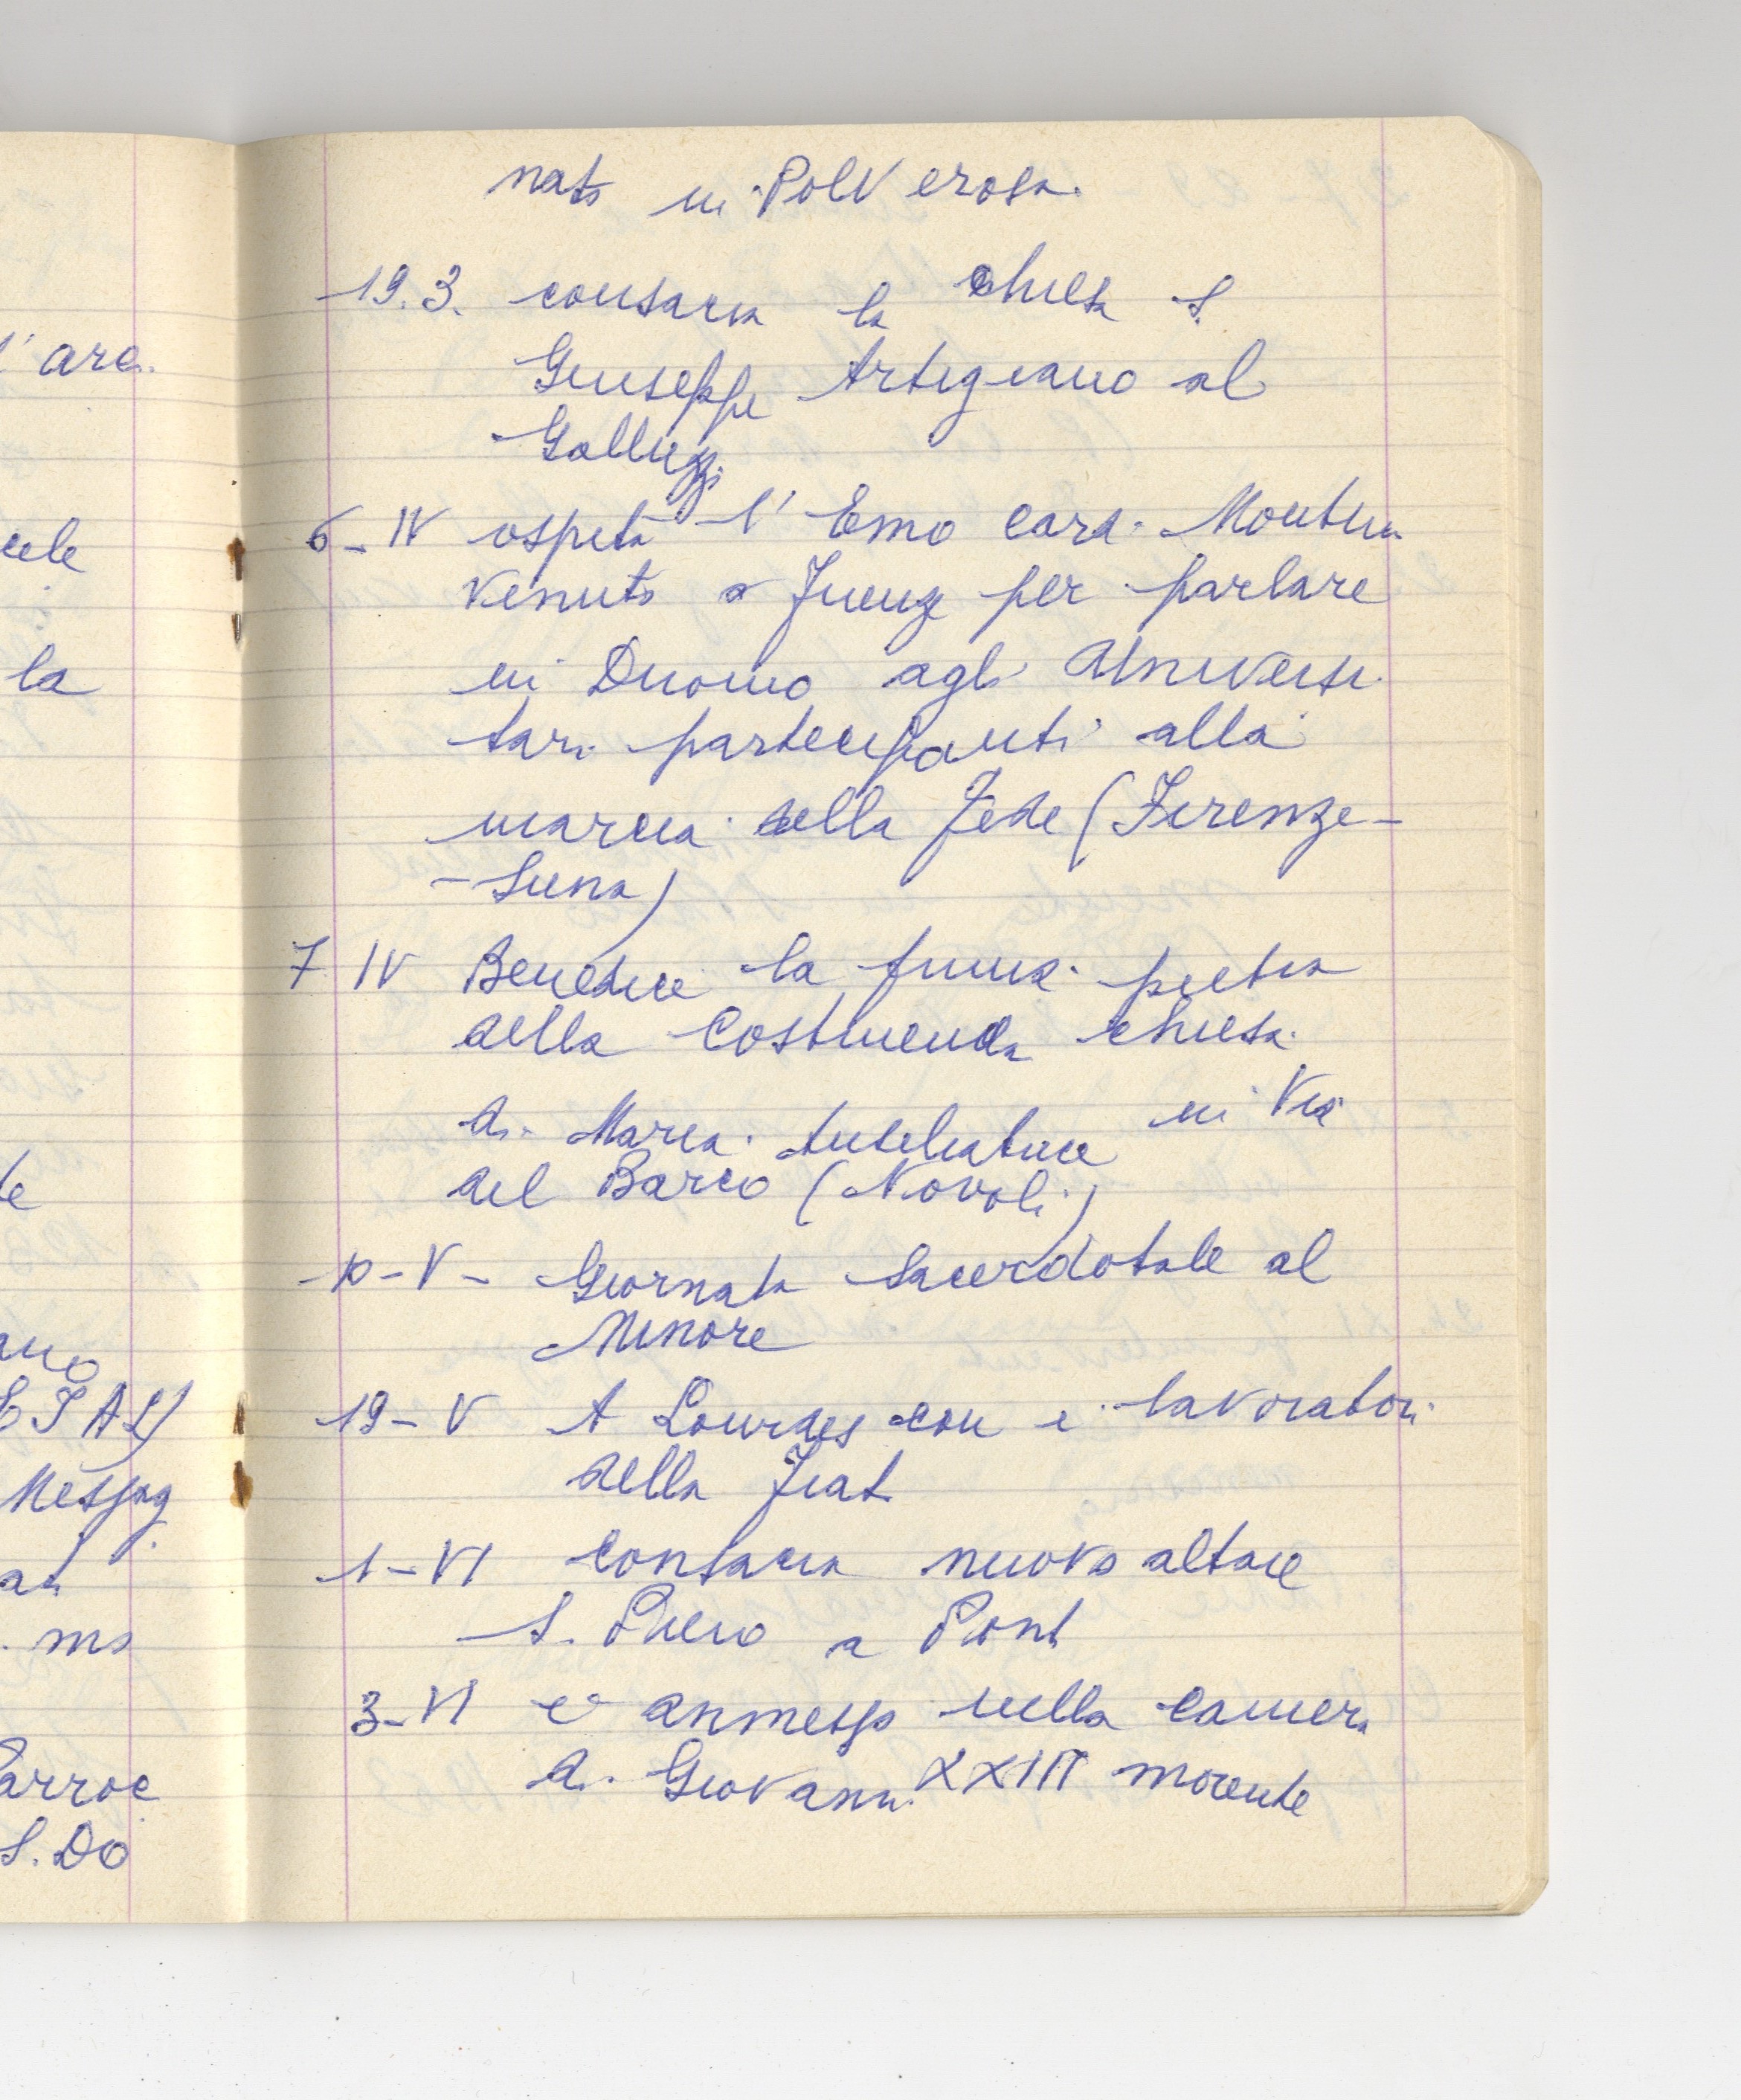 l'arc.
cele
la
te
ano
ETAL)
Messag
. ms
Parroc
S. Do
nato in Polverosa.
19.3. consacra la chiesa S.
Giuseppe Artigiano al
Galluzzi
6-IV ospita l'Emo Card. Montini
venuto a Firenz per parlare
in Duomo agli Universi
tari partecipanti alla
marcia della Fede (Firenze-
-Siena)
7 IV Benedice la prima pietra
della Costruenda chiesa
di Maria Ausiliatrice in Via
del Barco (Novoli)
10-V- Giornata Sacerdotale al
Minore
19-V A Lourdes con i lavoratori
della Fiat
1-VI Consacra nuovo altare
S. Piero a Pont
3-VI è ammesso nella camera
di Giovanni XXIII morente